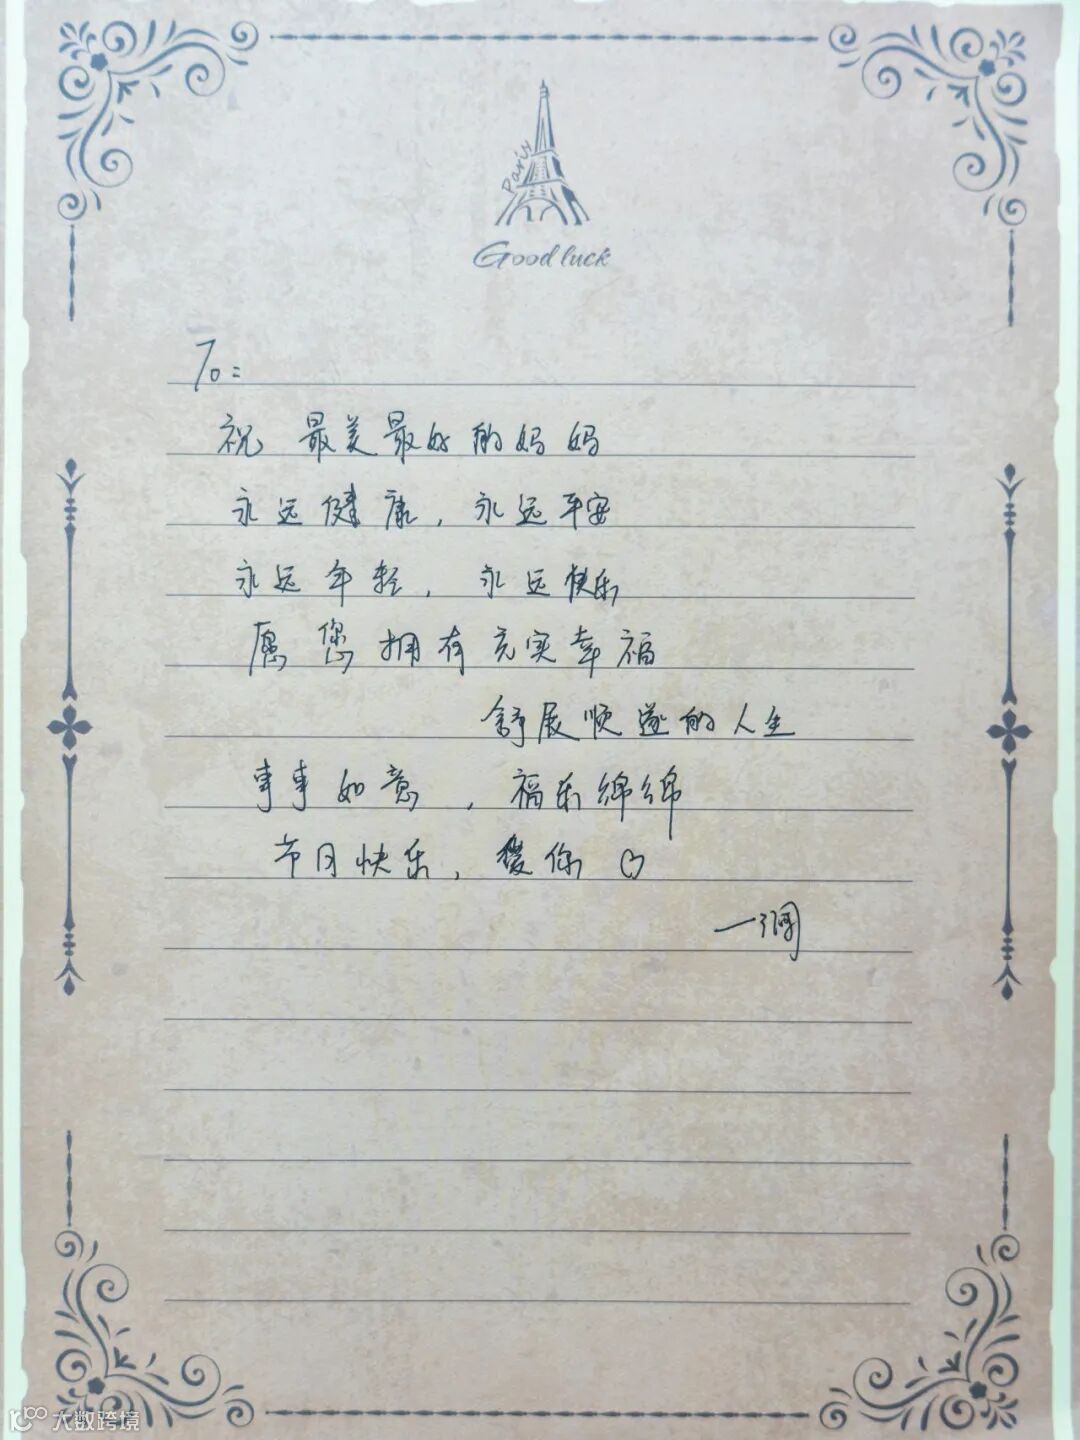 Paris
Good luck
To:
祝 最美最好的妈妈
永远健康，永远平安
永远年轻，永远快乐
愿您拥有充实幸福
舒展顺遂的人生
事事如意，福乐绵绵
节日快乐，爱你♡
大数跨境